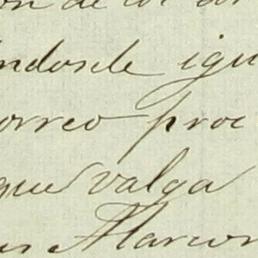 on de
ndosele igu
orreo proc
que valga
Marcon